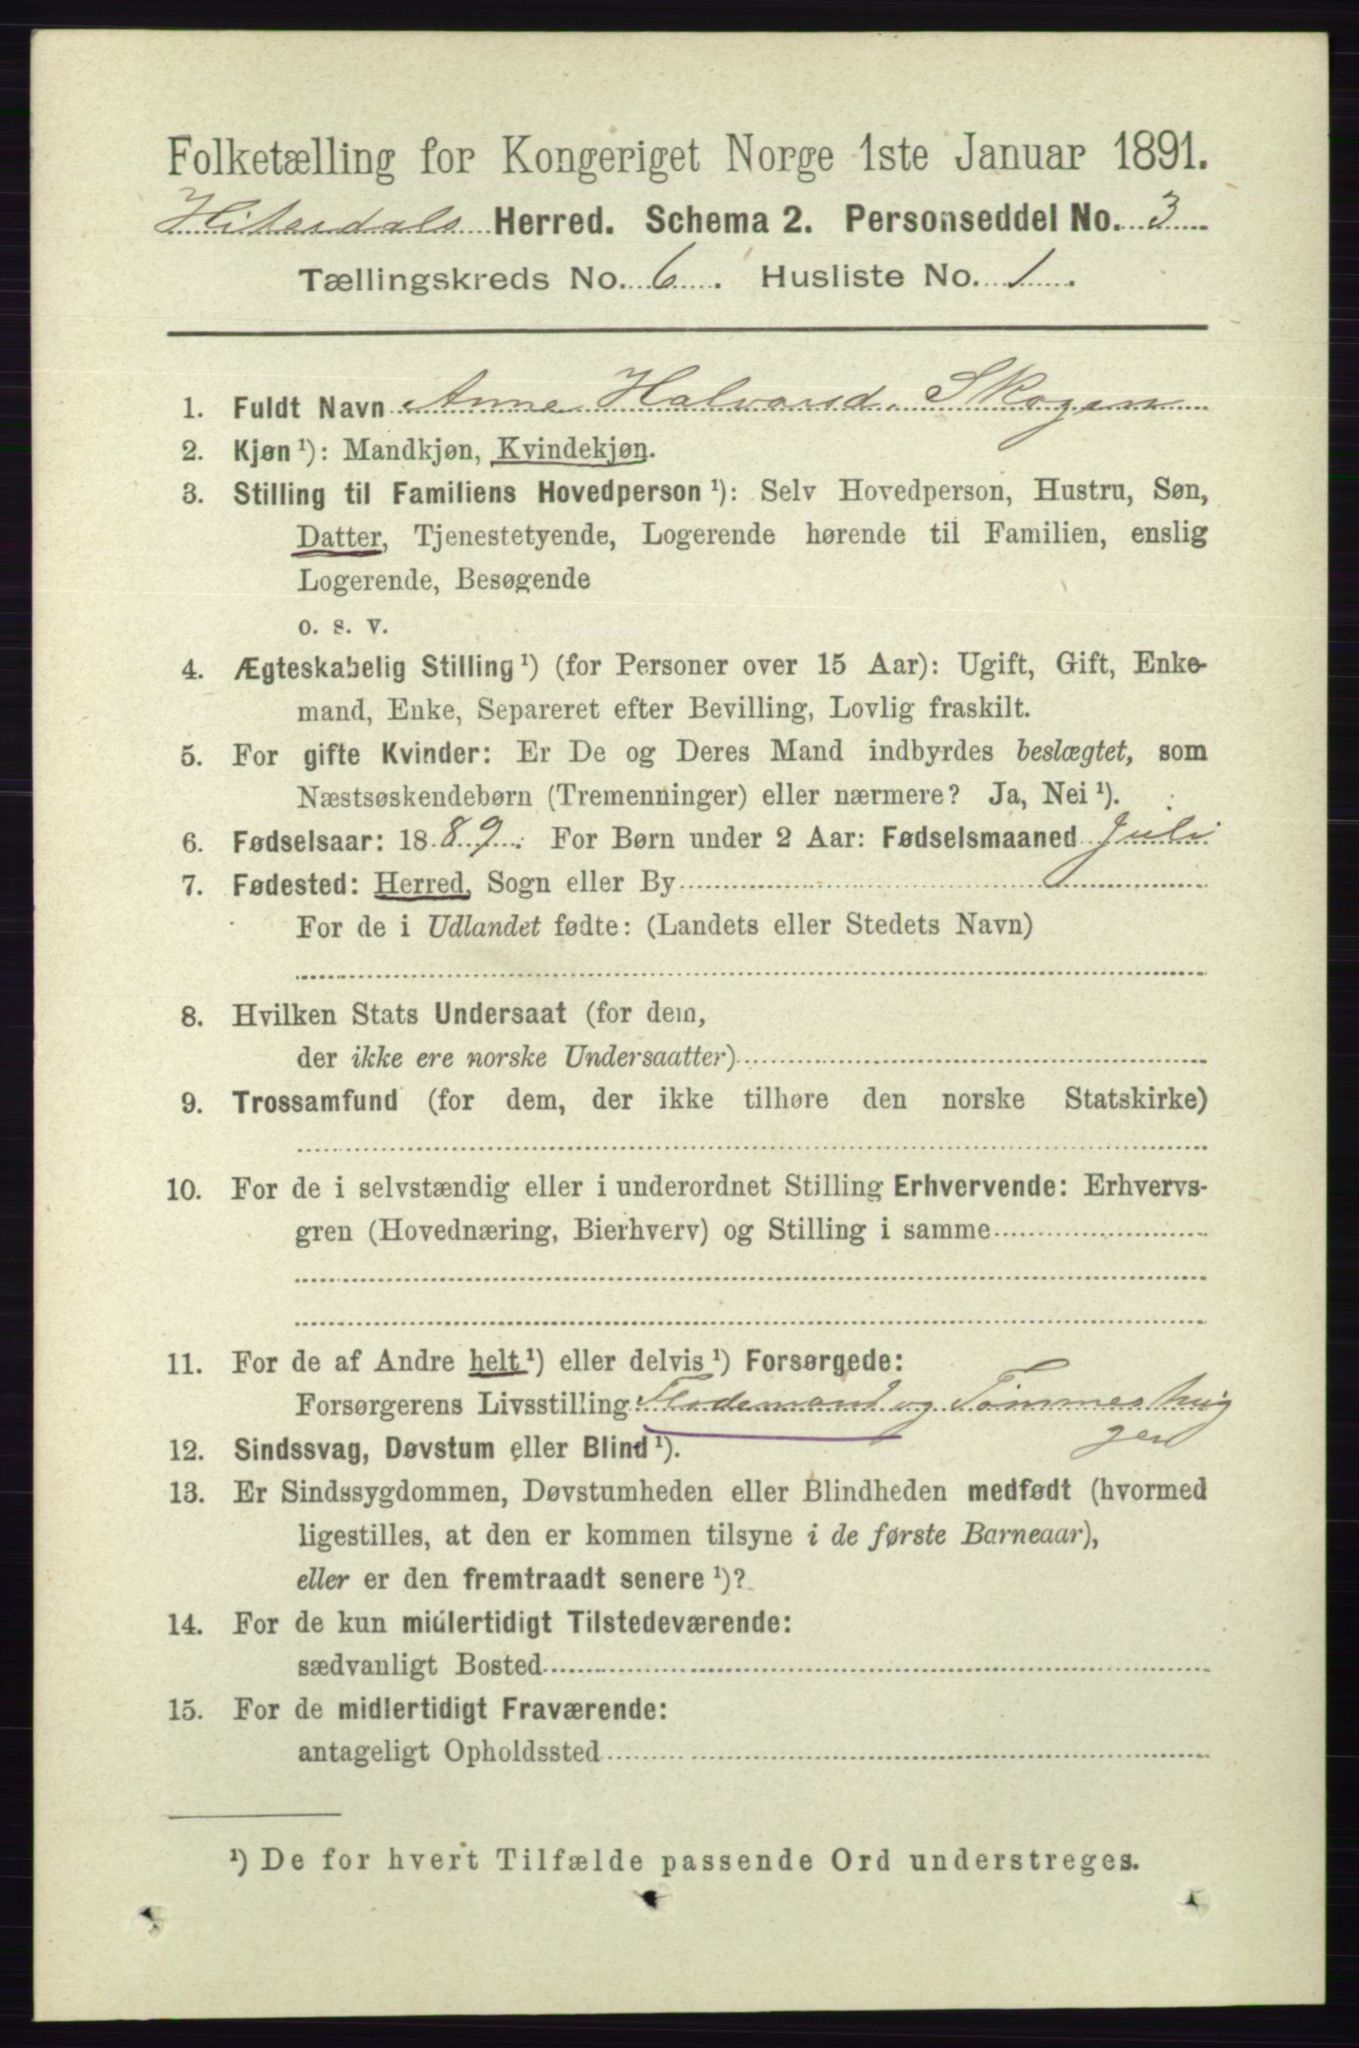 Folketælling for Kongeriget Norge 1ste Januar 1891.
Hiterdals Herred. Schema 2. Personseddel No. 3
Tællingskreds No. 6. Husliste No. 1.
1. Fuldt Navn Anne Halvorsd. Skogen
2. Kjøn ¹): Mandkjøn, Kvindekjøn.
3. Stilling til Familiens Hovedperson ¹): Selv Hovedperson, Hustru, Søn,
Datter, Tjenestetyende, Logerende hørende til Familien, enslig
Logerende, Besøgende
o. s. v.
4. Ægteskabelig Stilling ¹) (for Personer over 15 Aar): Ugift, Gift, Enke-
mand, Enke, Separeret efter Bevilling, Lovlig fraskilt.
5. For gifte Kvinder: Er De og Deres Mand indbyrdes beslægtet, som
Næstsøskendebørn (Tremenninger) eller nærmere? Ja, Nei ¹).
6. Fødselsaar: 1889. For Børn under 2 Aar: Fødselsmaaned Juli
7. Fødested: Herred, Sogn eller By
For de i Udlandet fødte: (Landets eller Stedets Navn)
8. Hvilken Stats Undersaat (for dem,
der ikke ere norske Undersaatter)
9. Trossamfund (for dem, der ikke tilhøre den norske Statskirke)
10. For de i selvstændig eller i underordnet Stilling Erhvervende: Erhvervs-
gren (Hovednæring, Bierhverv) og Stilling i samme
11. For de af Andre helt ¹) eller delvis ¹) Forsørgede:
Forsørgerens Livsstilling Flødemand og Tømmerhug
ger
12. Sindssvag, Døvstum eller Blind ¹).
13. Er Sindssygdommen, Døvstumheden eller Blindheden medfødt (hvormed
ligestilles, at den er kommen tilsyne i de første Barneaar),
eller er den fremtraadt senere ¹)?
14. For de kun midlertidigt Tilstedeværende:
sædvanligt Bosted
15. For de midlertidigt Fraværende:
antageligt Opholdssted
¹) De for hvert Tilfælde passende Ord understreges.